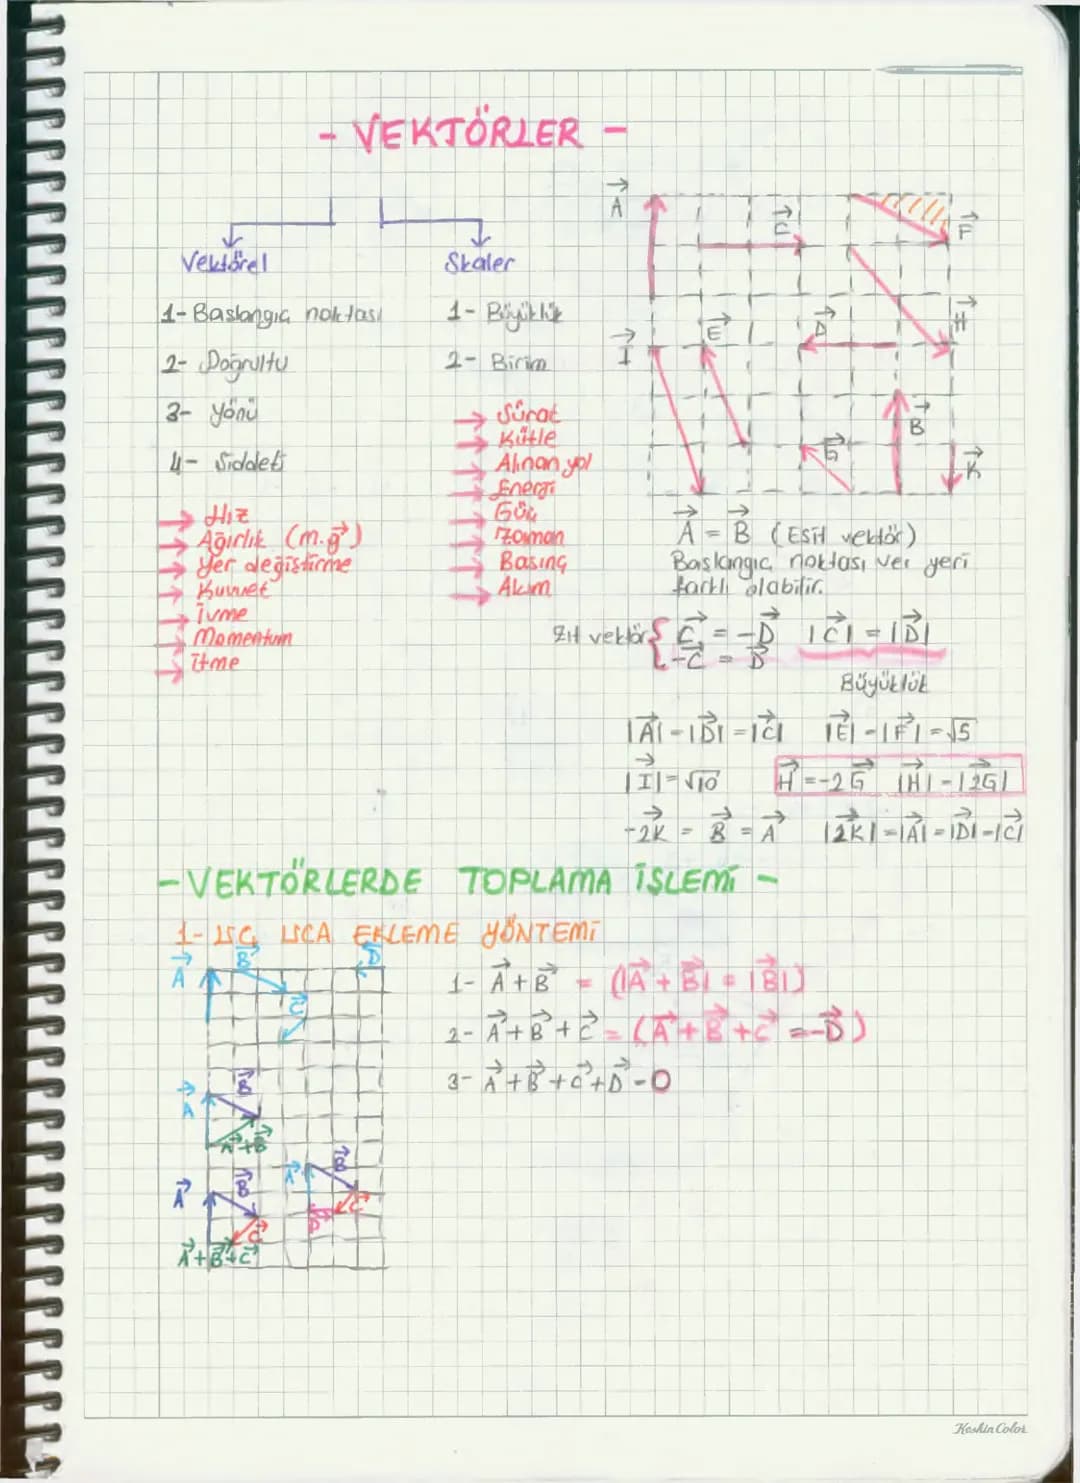 - VEKTÖRLER -
Vektörel
1- Başlangıç noktası
2- Doğrultu
3- Yönü
4- Şiddeti
→ Hız
→ Ağırlık (m.g⃗)
→ Yer değiştirme
→ Kuvvet
→ İvme
→ Momentum
→ İtme
Skaler
1- Büyüklük
2- Birim
→ Sürat
→ Kütle
→ Alınan yol
→ Enerji
→ Güç
→ Zaman
→ Basınç
→ Akım
A⃗
C⃗
F⃗
I⃗
E⃗
D⃗
H⃗
B⃗
G⃗
K⃗
A⃗ = B⃗ (Eşit vektör)
Başlangıç noktası ver yeri
farklı olabilir.
Zıt vektör { C⃗ = -D⃗ |C⃗| = |D⃗|
-C⃗ = D⃗
Büyüklük
|A⃗| = |D⃗| = |C⃗| |E⃗| = |F⃗| = √5
|I⃗| = √10 H⃗ = -2G⃗ |H⃗| = |2G⃗|
-2K⃗ = B⃗ = A⃗ |2K⃗| = |A⃗| = |D⃗| = |C⃗|
- VEKTÖRLERDE TOPLAMA İŞLEMİ -
1- UÇ UCA EKLEME YÖNTEMİ
A⃗ B⃗ C⃗ D⃗
1- A⃗ + B⃗ = (|A⃗ + B⃗| = |B⃗|)
2- A⃗ + B⃗ + C⃗ = (A⃗ + B⃗ + C⃗ = -D⃗)
3- A⃗ + B⃗ + C⃗ + D⃗ = 0
A⃗ B⃗
A⃗+B⃗
A⃗ B⃗ C⃗
A⃗+B⃗+C⃗
A⃗ B⃗ C⃗ D⃗
Keskin Color